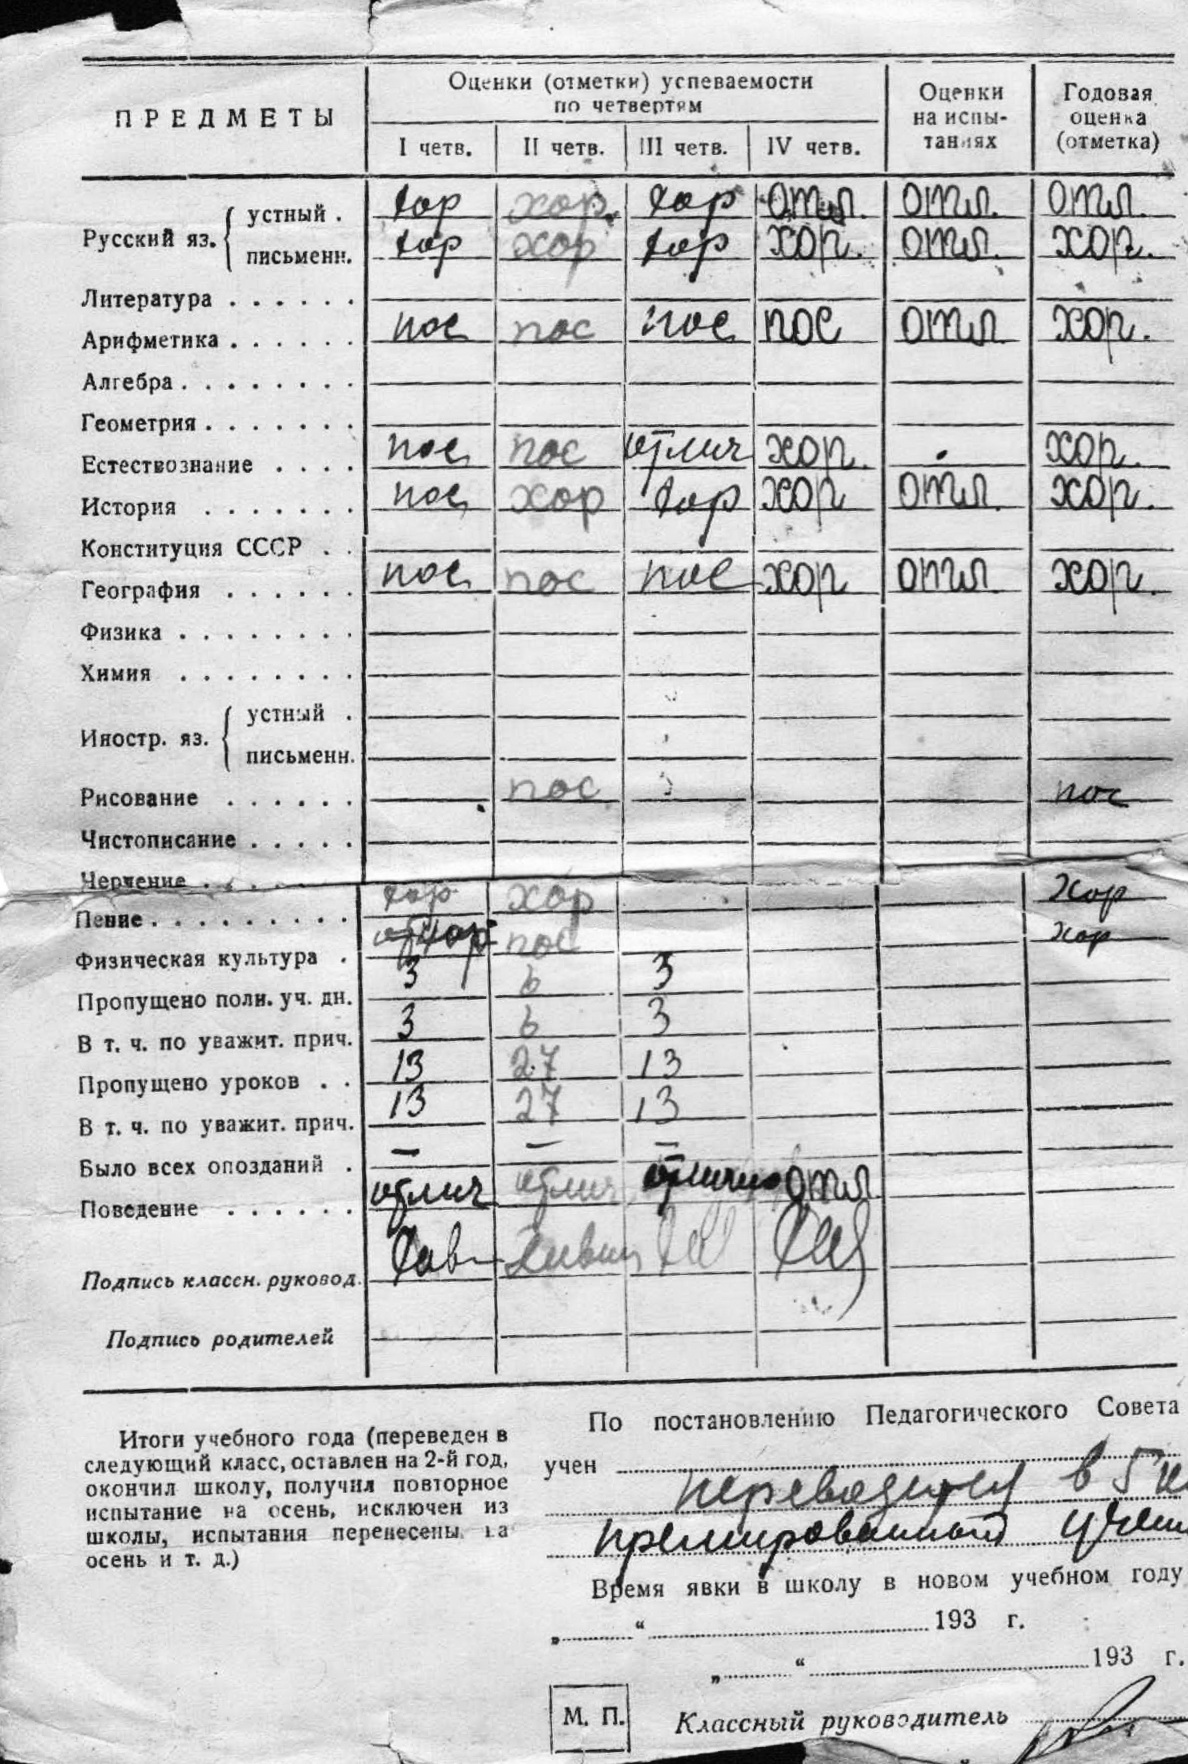 Оценки (отметки) успеваемости
по четвертям
ПРЕДМЕТЫ
Оценки на испы-таниях
Годовая оценка (отметка)
I четв. II четв. III четв. IV четв.
Русский яз. устный . хор хор. хор отл. отл. отл.
письменн. хор хор хор хор. отл. хор.
Литература . . . . . .
Арифметика . . . . . . пос пос пос пос отл хор.
Алгебра . . . . . . . .
Геометрия . . . . . . .
Естествознание . . . . пос пос отлич хор. хор.
История . . . . . . . пос хор хор хор отл. хор.
Конституция СССР . .
География . . . . . . пос пос пос хор отл. хор.
Физика . . . . . . . .
Химия . . . . . . . .
Иностр. яз. устный .
письменн.
Рисование . . . . . . пос. пос
Чистописание . . . . .
Черчение . . . .
Пение . . . . . . . . . хор хор хор
Физическая культура . хор пос хор
Пропущено полн. уч. дн. 3 6 3
В т. ч. по уважит. прич. 3 6 3
Пропущено уроков . . 13 27 13
В т. ч. по уважит. прич. 13 27 13
Было всех опозданий . — — —
Поведение . . . . . . отлич отлич отлично отл
Подпись классн. руковод.
Подпись родителей
Итоги учебного года (переведен в
следующий класс, оставлен на 2-й год,
окончил школу, получил повторное
испытание на осень, исключен из
школы, испытания перенесены на
осень и т. д.)
По постановлению Педагогического Совета
учен
переводится в 5 кл
премированный учени
Время явки в школу в новом учебном году
„ “ 193 г.
„ “ 193 г.
М. П.
Классный руководитель